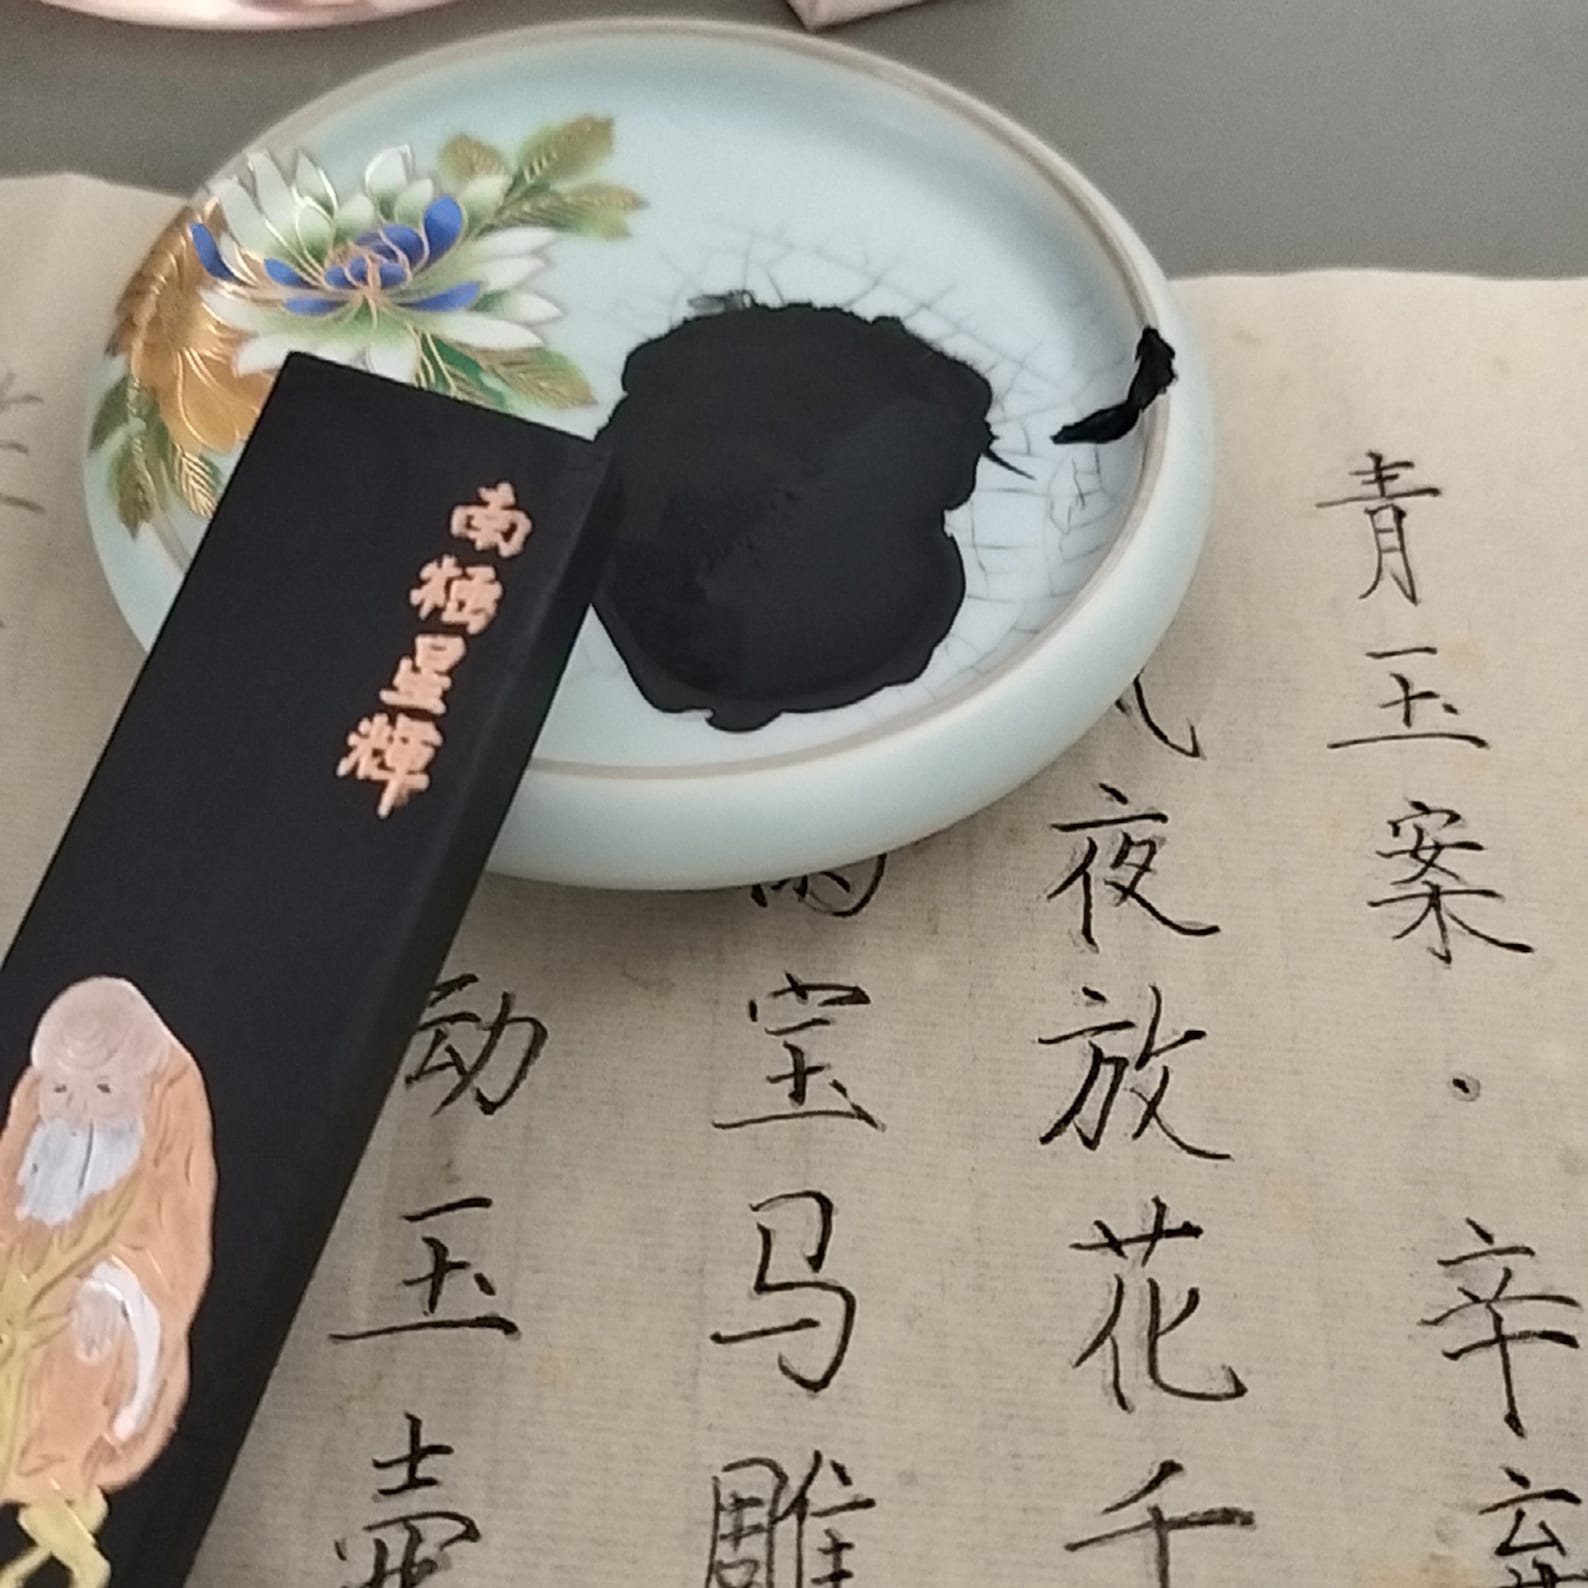 南極星輝
青玉案·辛弃
夜放花千
宝马雕
动玉壶